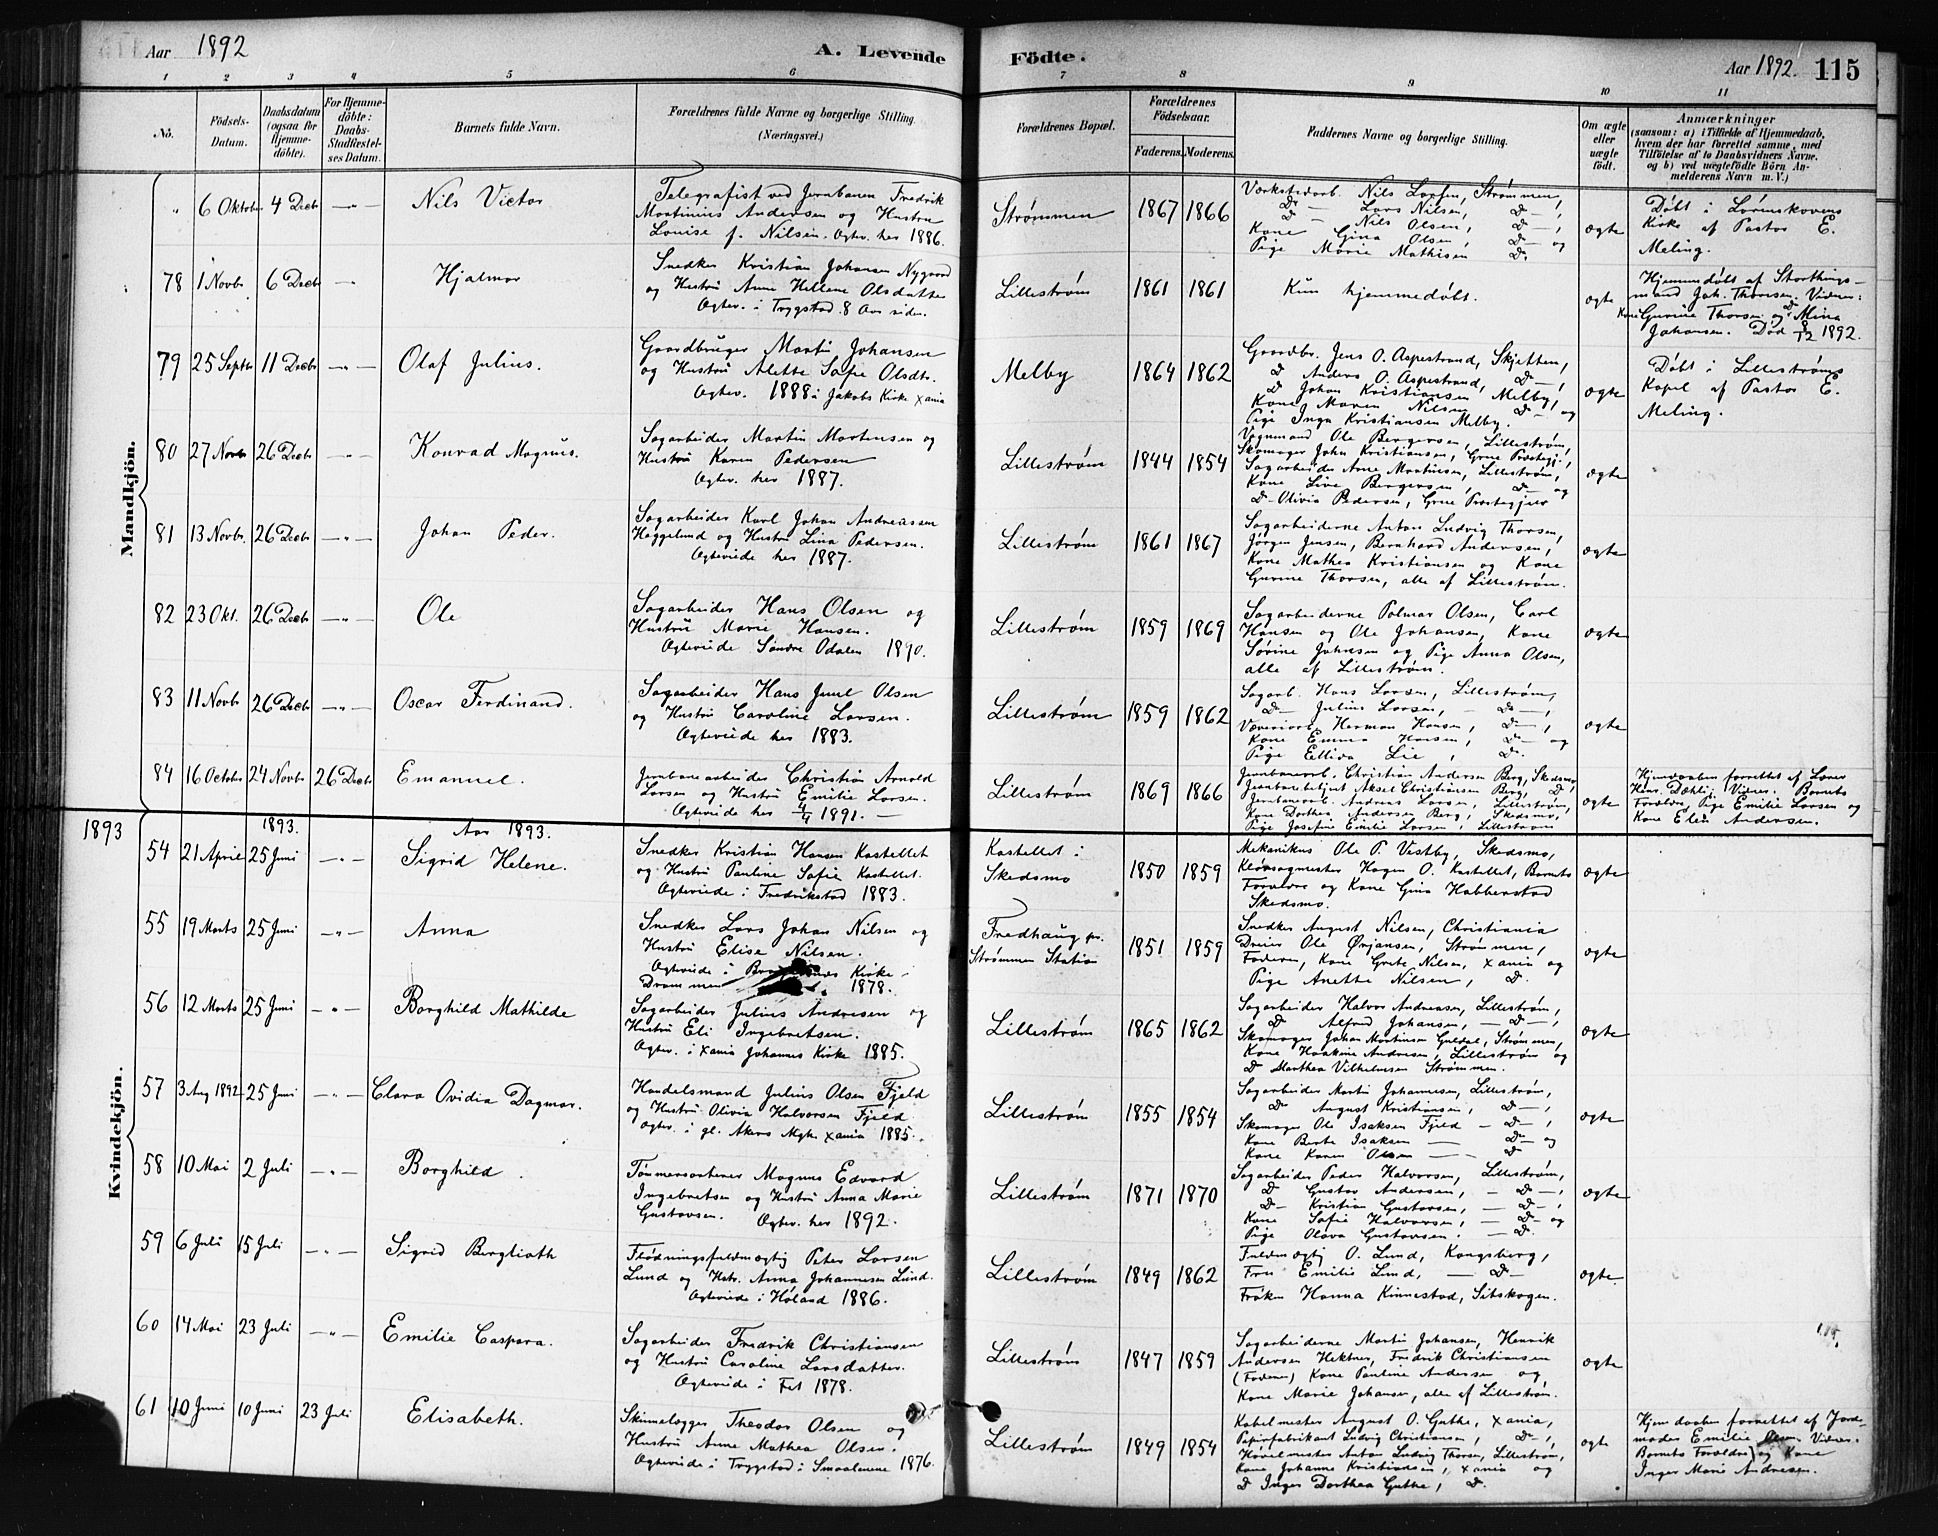 Aar 1892 A. Levende Födte. Aar 1892. 115
1 2 3 4 5 6 7 8 9 10 11
No.
Födsels-
Datum.
Daabsdatum
(ogsaa for
Hjemme-
döbte).
For Hjemme-
döbte:
Daabs-
Stadfæstel-
ses Datum.
Barnets fulde Navn.
Forældrenes fulde Navne og borgerlige Stilling.
(Næringsvei.)
Forældrenes Bopæl.
Forældrenes
Födselsaar.
Faderens. Moderens.
Faddernes Navne og borgerlige Stilling.
Om ægte
eller
uægte
födt.
Anmærkninger
(saasom: a) i Tilfælde af Hjemmedaab,
hvem der har forrettet samme, med
Tilföielse af to Daabsvidners Navne,
og b) ved uægtefödte Börn An-
melderens Navn m. V.)
Mandkjön.
" 6 Oktober 4 Decbr —"— Nils Victor
Telegrafist ved Jernbanen Fredrik
Martinius Andersen og Hustru
Louise f. Nilsen. Ægtev. her 1886.
Strømmen 1867 1866
Værkstedarb. Nils Larsen, Strømmen,
D — Lars Nilsen, D —,
D — Nils Olsen, D —,
Kone Gina Olsen, D — og
Pige Marie Mathisen D.
ægte
Døbt i Lørenskovens
Kirke af Pastor E.
Meling.
78 1 Novbr 6 Decbr —"— Hjalmar
Snedker Kristian Johansen Nygaard
og Hustru Anne Hellene Olsdatter
Ægtev. i Trygstad 8 Aar siden.
Lillestrøm 1861 1861
Kun hjemmedøbt.
ægte
Hjemmedøbt af Storthings-
mand Joh. Thorsen. Vidner:
Kone Gurine Thorsen og D Mina
Johansen. Død 8/12 1892.
79 25 Septbr 11 Decbr —"— Olaf Julius.
Gaardbruger Martin Johansen
og Hustru Alette Sofie Olsdtr.
Ægtev. 1888 i Jakobs Kirke Xania
Melby 1864 1862
Gaardbr. Jens O. Aspestrand, Skjetten,
D Anders O. Aspestrand, D —,
D Johan Kristiansen Melby,
Kone Maren Nilsen D — og
Pige Inga Kristiansen Melby.
ægte
Døbt i Lillestrøms
Kapel af Pastor E.
Meling.
80 27 Novbr 26 Decbr —"— Konrad Magnus.
Sagarbeider Martin Martinsen og
Hustru Karen Pedersen
Ægtev. her 1887.
Lillestrøm 1844 1854
Vognmand Ole Bergersen, Lillestrøm,
Skomager John Kristiansen, Grue Prestegj.,
Sagarbeider Arne Martinsen, Lillestrøm,
Kone Live Bergersen, D — og
D — Olivia Pedersen, Grue Præstegjæld
ægte
81 13 Novbr. 26 Decbr —"— Johan Peder.
Sagarbeider Karl Johan Andreassen
Häggelund og Hustru Lina Pedersen.
Ægteviede her 1887.
Lillestrøm 1861 1867
Sagarbeiderne Anton Ludvig Thorsen,
Jørgen Jensen, Bernhard Andersen,
Kone Mathea Kristiansen og Kone
Gurine Thorsen, alle af Lillestrøm.
ægte
82 23 Okt. 26 Decbr —"— Ole
Sagarbeider Hans Olsen og
Hustru Marie Hansen.
Ægteviede Søndre Odalen 1890.
Lillestrøm 1859 1869
Sagarbeiderne Palmar Olsen, Carl
Hansen og Ole Johansen, Kone
Sørine Johnsen og Pige Anna Olsen,
alle af Lillestrøm.
ægte
83 11 Novbr 26 Decbr —"— Oscar Ferdinand.
Sagarbeider Hans Juul Olsen
og Hustru Caroline Larsen.
Ægteviede her 1883.
Lillestrøm 1859 1862
Sagarb. Hans Larsen, Lillestrøm,
D — Julius Larsen, — D —,
Væveriarb. Herman Hansen, D —,
Kone Emma Hansen, D — og
Pige Ellida Lie, D.
ægte
84 16 October 24 Novbr 26 Decbr Emanuel.
Jernbanearbeider Christian Arnold
Larsen og Hustru Emilie Larsen.
Ægteviede her 4/4 1891. —
Lillestrøm 1869 1866
Jernbanearb. Christian Andersen Berg, Skedsmo
Jernbanebetjent Aksel Christiansen Berg, D,
Jernbanearb. Andreas Larsen, Lillestrøm,
Kone Dorthea Andersen Berg, Skedsmo,
Pige Josefine Emilie Larsen, Lillestrøm
ægte
Hjemdaaben forrettet af Lærer
Hans Dæhli, Vidner. Barnets
Forældre, Pige Emilie Larsen og
Kone Elen Andersen.
1893 1893. Aar 1893.
Kvindekjön.
54 21 April 25 Juni —"— Sigrid Helene.
Snedker Kristian Hansen Kastellet
og Hustru Pauline Sofie Kastellet.
Ægteviede i Fredrikstad 1883.
Kastellet i
Skedsmo 1850 1859
Mekanikus Ole P. Vestby, Skedsmo,
Kløvsagmester Hagen O. Kastellet, Barnets
Forældre og Kone Gina Habberstad
Skedsmo.
ægte
55 19 Marts 25 Juni —"— Anna
Snedker Lars Johan Nilsen og
Hustru Elise Nilsen.
Ægteviede i Kirke
Drammen 1878.
Fredhaug pr.
Strømmen Station 1851 1859
Snedker August Nilsen, Christiania
Dreier Ole Ørjansen, Strømmen,
Faderen, Kone Grete Nilsen, Xania og
Pige Anette Nilsen, D.
ægte
56 12 Marts 25 Juni —"— Borghild Mathilde
Sagarbeider Julius Andresen og
Hustru Eli Ingebretsen.
Ægtev. i Xania Johannes Kirke 1885.
Lillestrøm 1865 1862
Sagarbeider Halvor Andreasen, Lillestrøm,
D Alfred Johansen, — D —,
Skomager Johan Martinsen Guldal, Strømmen,
Kone Haakine Andresen, Lillestrøm og
D Marthea Vilhelmsen Strømmen.
ægte
57 3 Aug 1892 25 Juni —"— Clara Ovidia Dagmar.
Handelsmand Julius Olsen Fjeld
og Hustru Olivia Halvorsen Fjeld
Ægtev. i gl. Akers Mgh. Xania 1885.
Lillestrøm 1855 1854
Sagarbeider Martin Johannesen, Lillestrøm,
D August Kristiansen, D —,
Skomager Ole Isaksen Fjeld — D —,
Kone Berte Isaksen — D — og
Kone Karen Olsen — D
ægte
58 10 Mai 2 Juli —"— Borghild.
Tømmersorterer Magnus Edvard
Ingebretsen og Hustru Anna Marie
Gustavsen. Ægtev. her 1892.
Lillestrøm 1871 1870
Sagarbeider Peder Halvorsen, Lillestrøm,
D Gustav Andersen, — D —,
D — Kristian Gustavsen, — D —,
Kone Sofie Halvorsen, — D — og
Pige Olava Gustavsen. — D.
ægte
59 6 Juli 15 Juli —"— Sigrid Berglioth
Flødningsfuldmægtig Peter Larsen
Lund og Hstr. Anna Johannesen Lund.
Ægteviede i Høland 1886.
Lillestrøm 1849 1862
Fuldmægtig O. Lund, Kongsberg,
Fru Emilie Lund, — D —
Frøken Hanna Kinnestad, Sitskogen.
ægte.
60 14 Mai 23 Juli —"— Emilie Caspara.
Sagarbeider Fredrik Christiansen
og Hustru Caroline Larsdatter.
Ægteviede i Fet 1878.
Lillestrøm 1847 1859
Sagarbeiderne Martin Johansen, Henrik
Andersen Hektner, Fredrik Christiansen
(Faderen) Kone Pauline Andersen og
Kone Marie Johansen, alle af Lillestrøm.
ægte
61 10 Juni 10 Juni 23 Juli Elisabeth.
Skinnelægger Theodor Olsen og
Hustru Anne Mathea Olsen.
Ægteviede i Trygstad i Smaalenene 1876.
Lillestrøm 1849 1854
Kabelmester August O. Guthe, Xania,
Papirfabrikant Ludvig Christiansen, D —,
Høvelmester Anton Ludvig Thorsen, Lillestrøm,
Kone Johanne Kristiansen, Xania og
D Inger Dorthea Guthe, D.
ægte
Hjemdaaben forrettet af Jorde-
moder Emilie Olsen Vidner.
Barnets Forældre og Kone
Inger Marie Andresen.